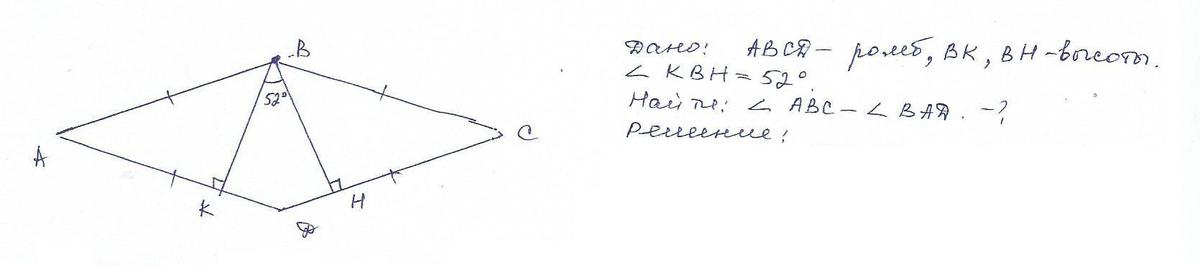 B
52°
A
C
K
H
D
Дано: ABCD – ромб, BK, BH – высоты.
∠ KBH = 52°.
Найти: ∠ ABC – ∠ BAD. – ?
Решение: